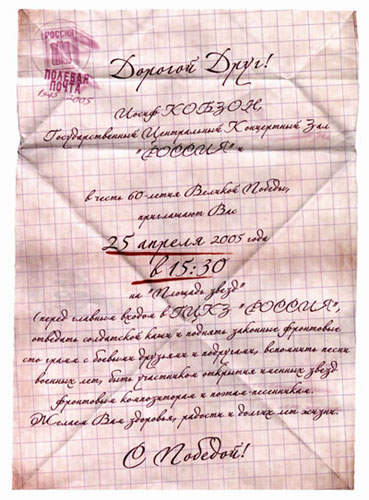 РОССИЯ
ПОЛЕВАЯ
ПОЧТА
1945 2005
Дорогой Друг!
Иосиф КОБЗОН,
Государственный Центральный Концертный Зал
"РОССИЯ"
в честь 60-летия Великой Победы,
приглашают Вас
25 апреля 2005 года
в 15:30
на "Площадь звезд"
(перед главным входом в ГЦКЗ "РОССИЯ"),
отведать солдатской каши и поднять законные фронтовые
сто грамм с боевыми друзьями и подругами, вспомнить песни
военных лет, быть участником открытия именных звезд
фронтовым композиторам и поэтам-песенникам.
Желаем Вам здоровья, радости и долгих лет жизни.
С Победой!